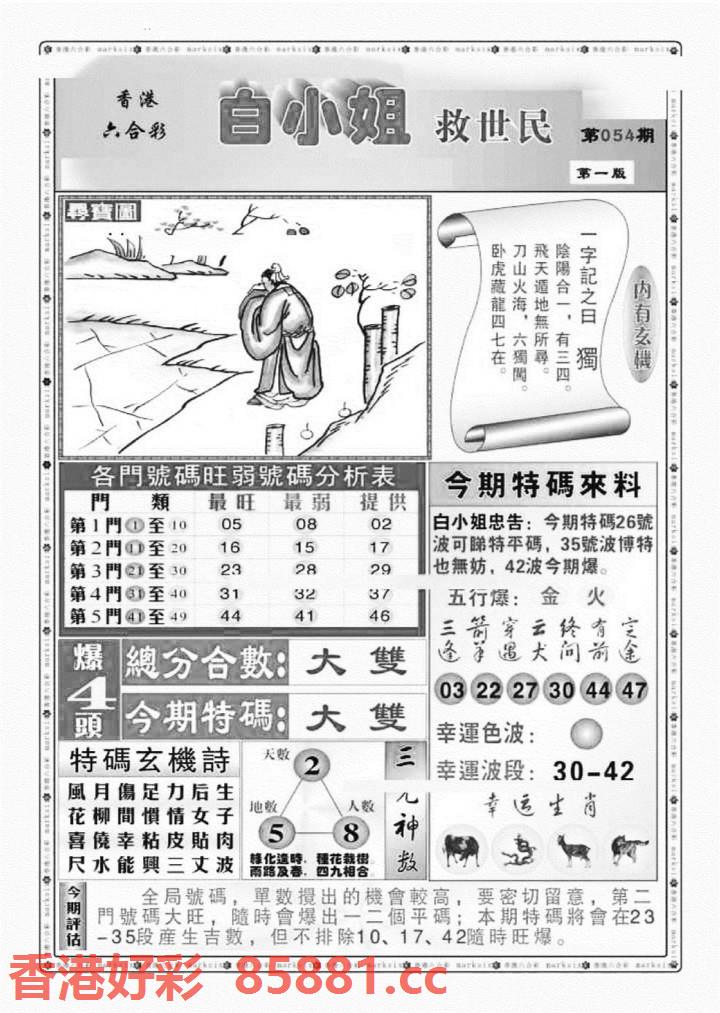 香港
六合彩
白小姐 救世民 第054期
第一版
尋寶圖
一字記之曰 獨
陰陽合一，有三四。
飛天遁地無所尋。
刀山火海，六獨闖。
卧虎藏龍四七在。
内有玄機
各門號碼旺弱號碼分析表
門 類 最旺 最弱 提供
第1門 1 至 10 05 08 02
第2門 11 至 20 16 15 17
第3門 21 至 30 23 28 29
第4門 31 至 40 31 32 37
第5門 41 至 49 44 41 46
今期特碼來料
白小姐忠告：今期特碼26號
波可睇特平碼，35號波博特
也無妨，42波今期爆。
五行爆： 金 火
三箭穿云终有定
逢羊遇犬问前途
03 22 27 30 44 47
幸運色波：
幸運波段：30-42
幸运生肖
爆4頭
總分合數：大 雙
今期特碼：大 雙
特碼玄機詩
風月傷足力后生
花柳間慣情女子
喜僥幸粘皮貼肉
尺水能興三丈波
天數
2
地數 人數
5 8
綠化達時，種花栽樹
雨路及春，四九相合
三元神數
今期評估
全局號碼，單數攪出的機會較高，要密切留意，第二
門號碼大旺，隨時會爆出一二個平碼；本期特碼將會在23
-35段産生吉數，但不排除10、17、42隨時旺爆。
香港好彩 85881.cc